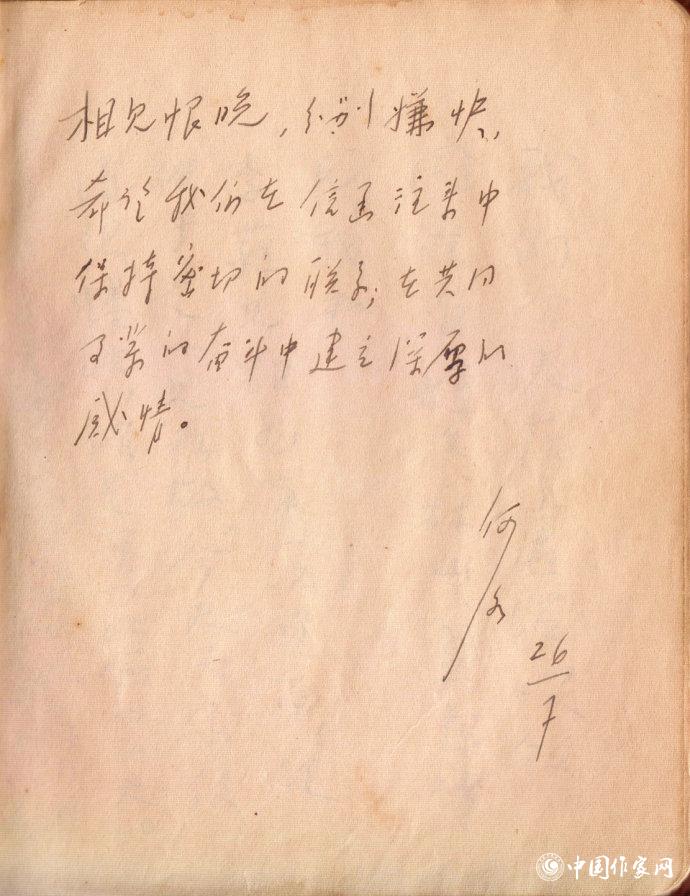 相见恨晚，分别嫌快，
希望我们在信函往来中
保持密切的联系；在共同
事业的奋斗中建立深厚的
感情。
何
26
7
中国作家网